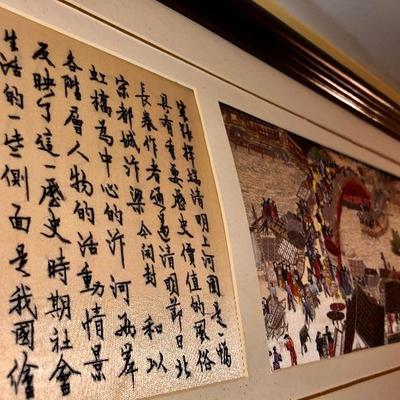 宋張擇端清明上河圖是幅
具有重要歷史價值的風俗
長卷作者通過清明節日北
宋都城汴梁今開封 和以
虹橋為中心的汴河兩岸
各階層人物的活動情景
反映了這一歷史時期社會
生活的一些側面是我國繪